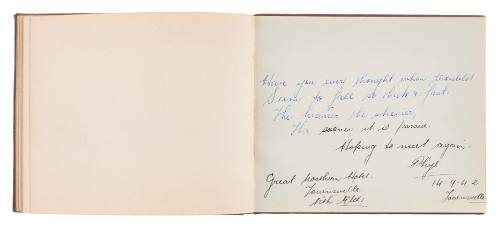 Have you ever thought when troubles
Seem to fall so thick & fast.
The heavier the shower,
The sooner it is passed.
Hoping to meet again.
Phyl
Great Northern Hotel. 14-9-42
Townsville Townsville
Nth Qld.